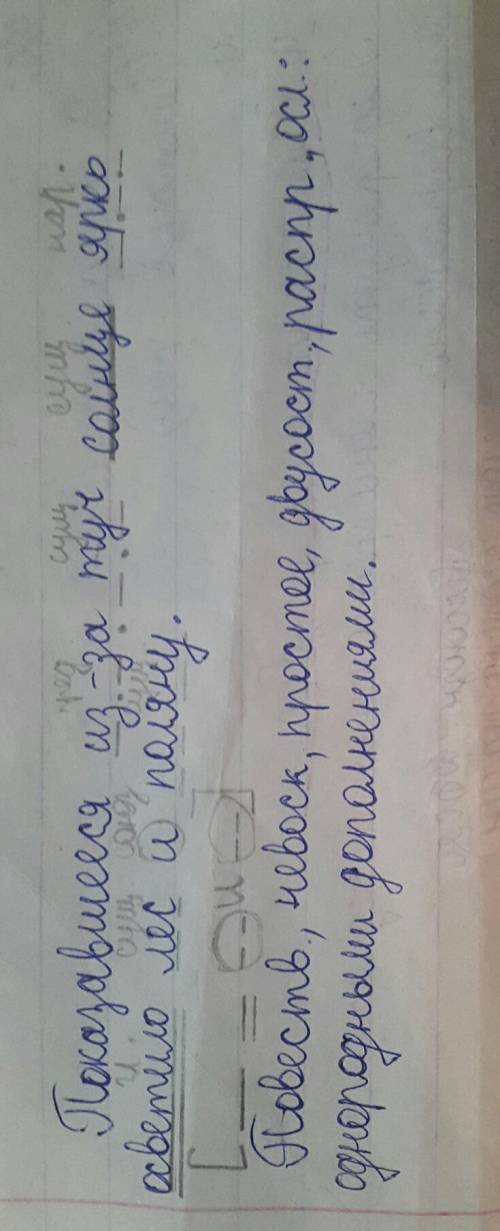 пред сущ сущ нар.
Показавшееся из-за туч солнце ярко
г. сущ союз сущ
осветило лес и поляну.
[— = (--) и (--)]
Повеств., невоск, простое, двусост., распр., осл.:
однородными дополнениями.